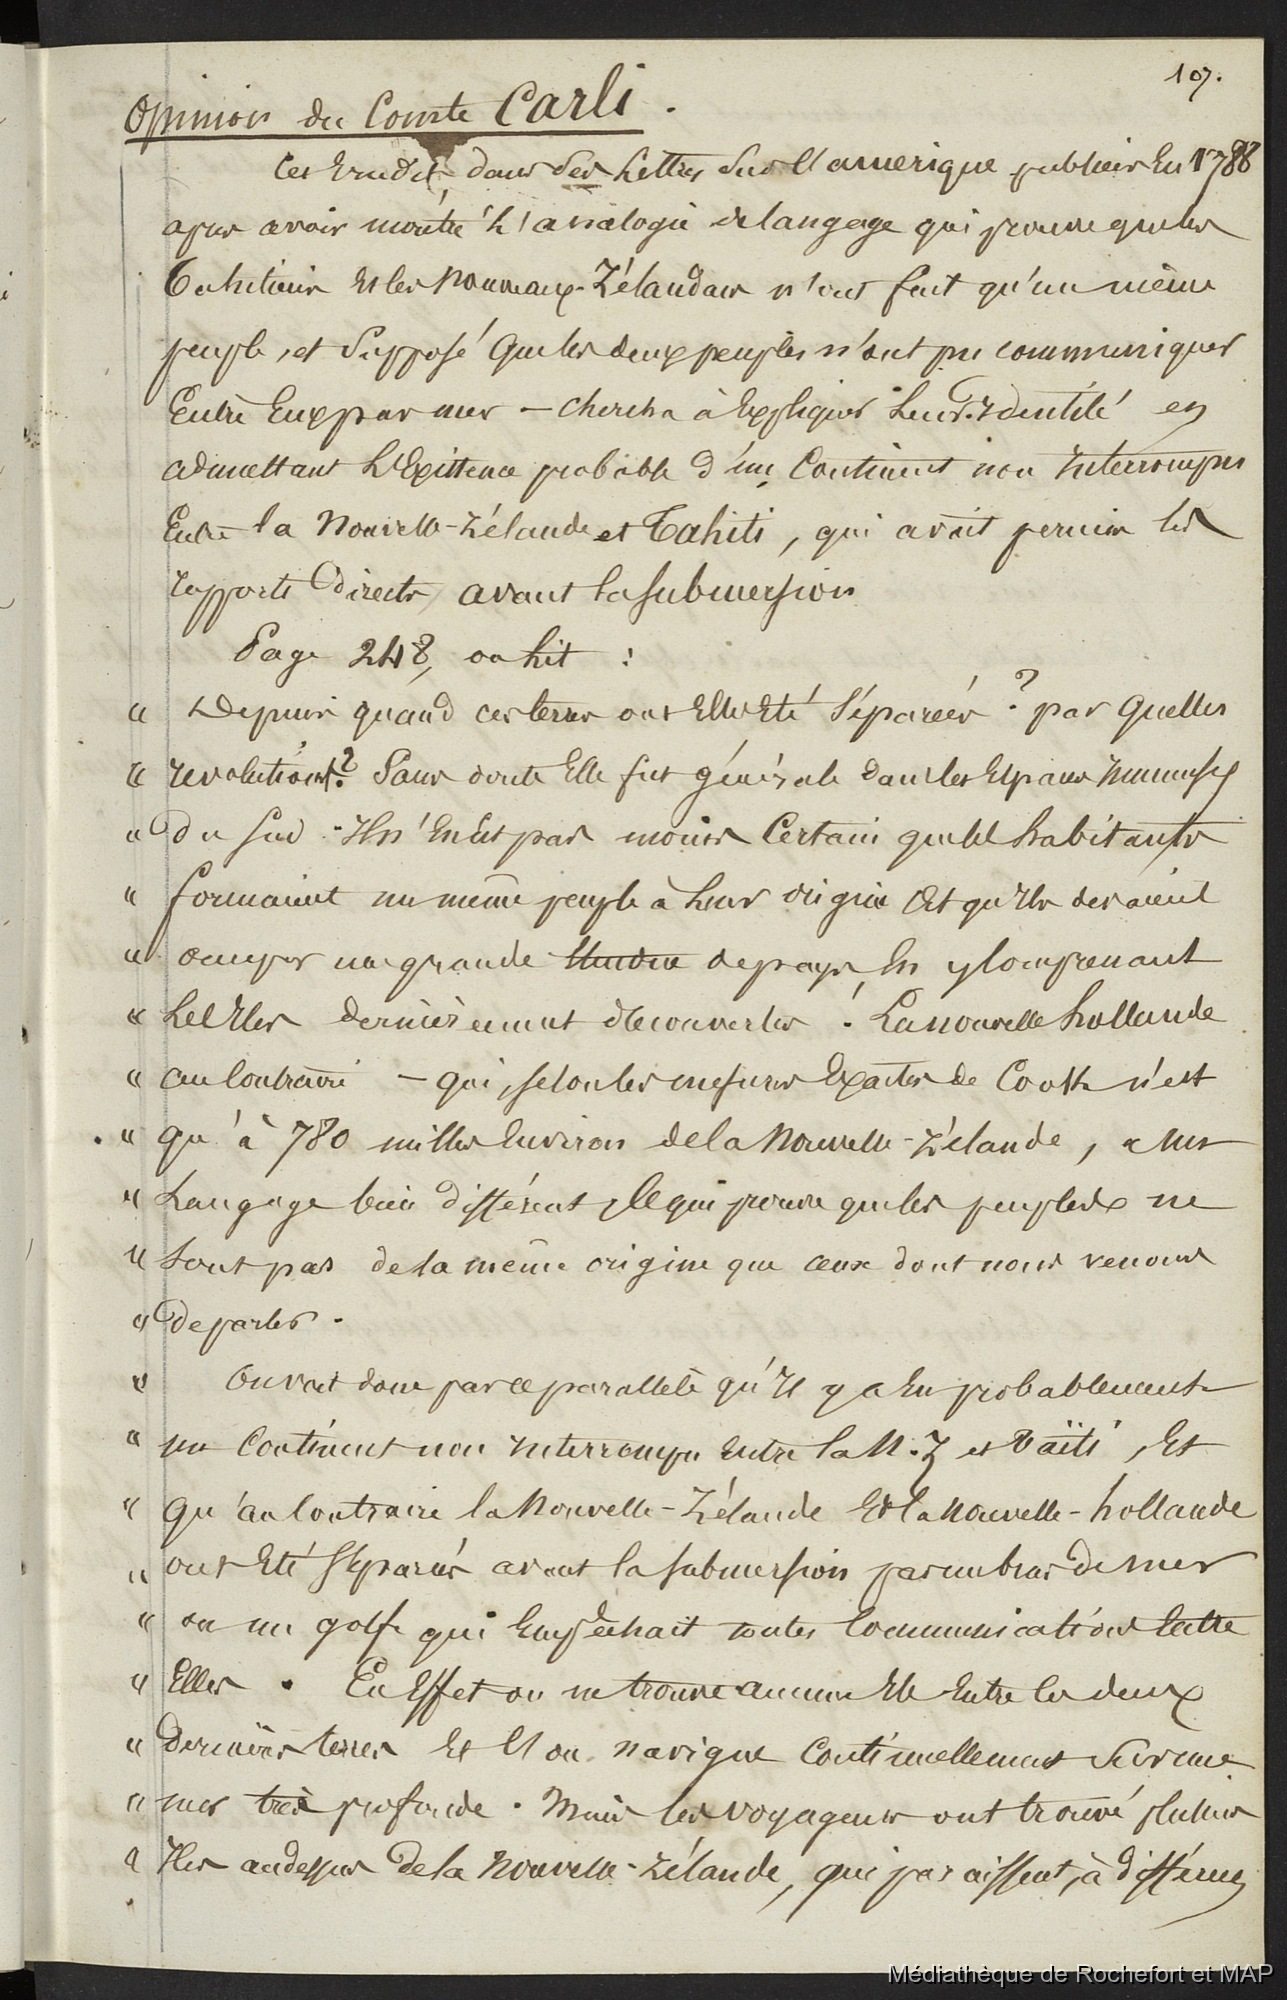 107.
Opinion du Comte Carli.
Cet Erudit, dans ses Lettres sur l'amerique publiées En 1788
apres avoir montré l'analogie de langage qui prouve que les
Tahitiens Et les Nouveaux-Zélandais n'ont fait qu'un même
peuple, et supposé que les deux peuples n'ont pu communiquer
Entre Eux par mer – chercha à Expliquer leur identité en
admettant l'Existence probable d'un Continent non interrompu
Entre la Nouvelle-Zélande et Tahiti, qui avait permis les
rapports directs avant la submersion
Page 248, on lit :
" Depuis quand ces terres ont Elles Eté séparées ? par quelles
" revolutions ? Sans doute Elle fut générale dans les Espaces immenses
" du sud. Il n'En Est pas moins Certain que les habitants
" formaient un même peuple à leur origine Et qu'ils devaient
" occuper une grande étendue de pays, En y comprenant
" les Iles dernièrement découvertes. La nouvelle hollande
" au Contraire – qui, selon les mesures Exactes de Cook n'est
" qu'à 780 milles Environ de la Nouvelle-Zélande, a un
" Langage bien différent, Ce qui prouve que les peuples ne
" sont pas de la même origine que ceux dont nous venons
" de parler.
" On voit donc par ce parallele qu'il y a Eu probablement
" un Continent non interrompu Entre la N.Z et Taïti, Et
" qu'au Contraire la Nouvelle-Zélande Et la Nouvelle-hollande
" ont Eté séparées avant la submersion par un bras de mer
" ou un golfe qui Empêchait toutes Communications Entre
" Elles. En Effet on ne trouve aucune Ile Entre les deux
" dernières terres Et l'on navigue Continuellement sur une
" mer très profonde. Mais les voyageurs ont trouvé plusieurs
" Iles au dessus de la Nouvelle-Zélande, qui paraissent, à différens
Médiathèque de Rochefort et MAP